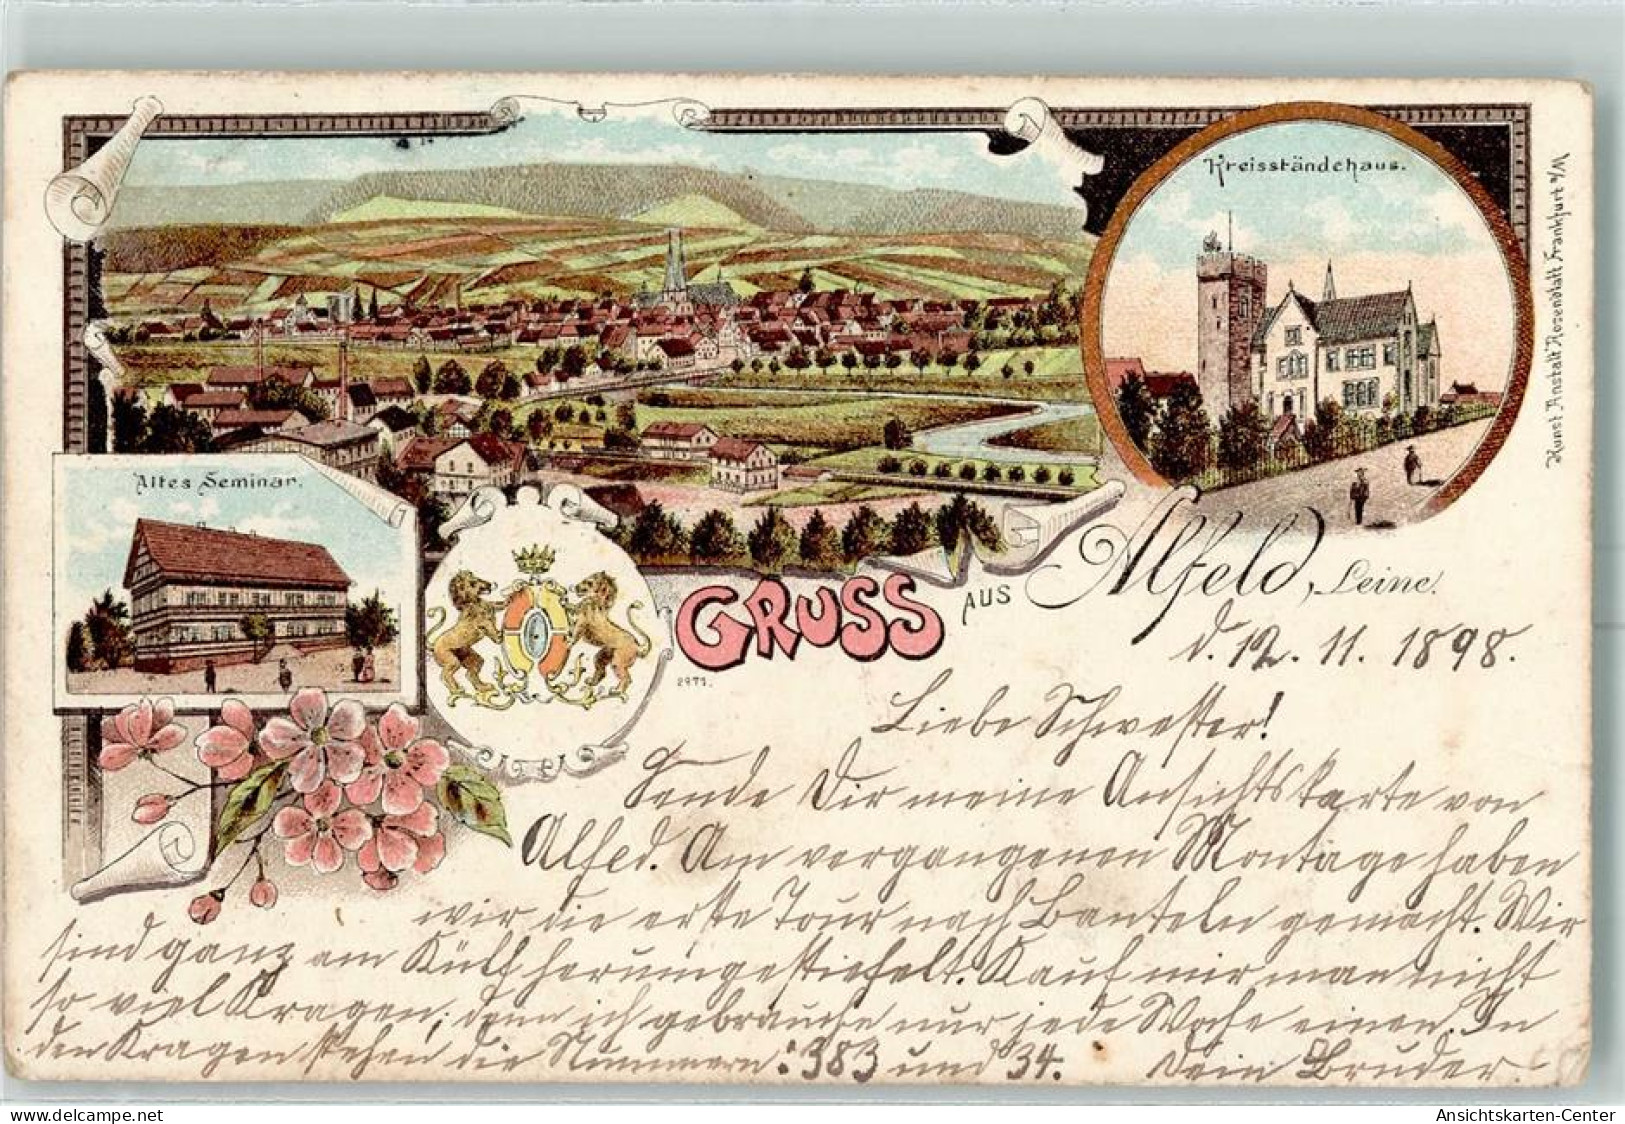 Kreisständehaus.
Kunst Anstalt Rosenblatt Frankfurt a/M
Altes Seminar.
GRUSS AUS Alfeld, Leine.
2971.
d. 12. 11. 1898.
Liebe Schwester!
Sende Dir meine Ansichtskarte von
Alfed. Am vergangenen Montage haben
wir die erste Tour nach Banteln gemacht. Wir
sind ganz am Külf herumgestiefelt. Kauf mir man nicht
so viel Kragen, denn ich gebrauche nur jede Woche einen. In
den Kragen stehen die Nummern: 383 und 34. Dein Bruder.
Ansichtskarten-Center
www.delcampe.net